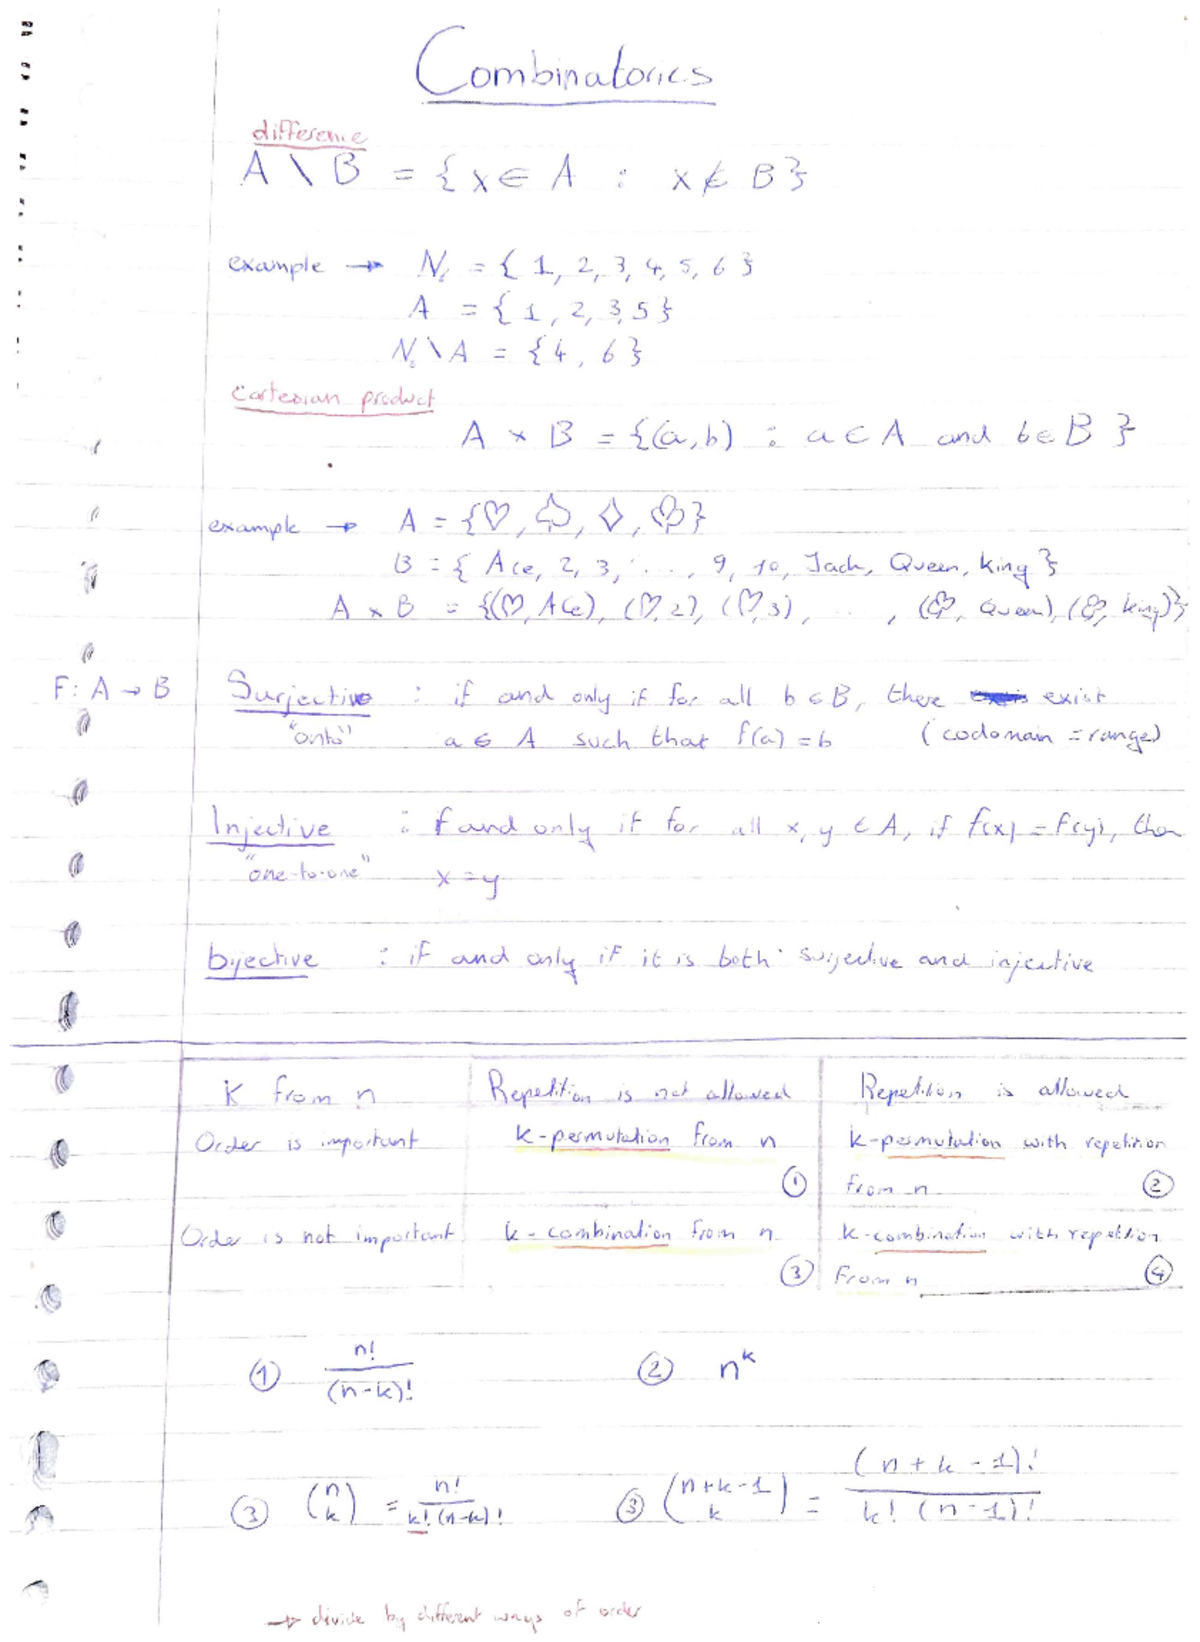 Combinatorics
difference
A \ B = {x ∈ A : x ∉ B}
example → N₆ = {1, 2, 3, 4, 5, 6}
A = {1, 2, 3, 5}
N₆ \ A = {4, 6}
Cartesian product
A × B = {(a, b) : a ∈ A and b ∈ B}
example → A = {♡, ♤, ♢, ♧}
B = {Ace, 2, 3, ..., 9, 10, Jack, Queen, king}
A × B = {(♡, Ace), (♡, 2), (♡, 3), ..., (♧, Queen), (♧, king)}
F: A → B Surjective : if and only if for all b ∈ B, there exist
"onto" a ∈ A such that f(a) = b (codomain = range)
Injective : if and only if for all x, y ∈ A, if f(x) = f(y), then
"one-to-one" x = y
bijective : if and only if it is both surjective and injective
K from n Repetition is not allowed Repetition is allowed
Order is important k-permutation from n k-permutation with repetition
① from n ②
Order is not important k-combination from n k-combination with repetition
③ from n ④
① n!/(n-k)! ② n^k
③ (n k) = n!/(k!(n-k)!) ③ (n+k-1 k) = (n+k-1)!/(k!(n-1)!)
→ divide by different ways of order